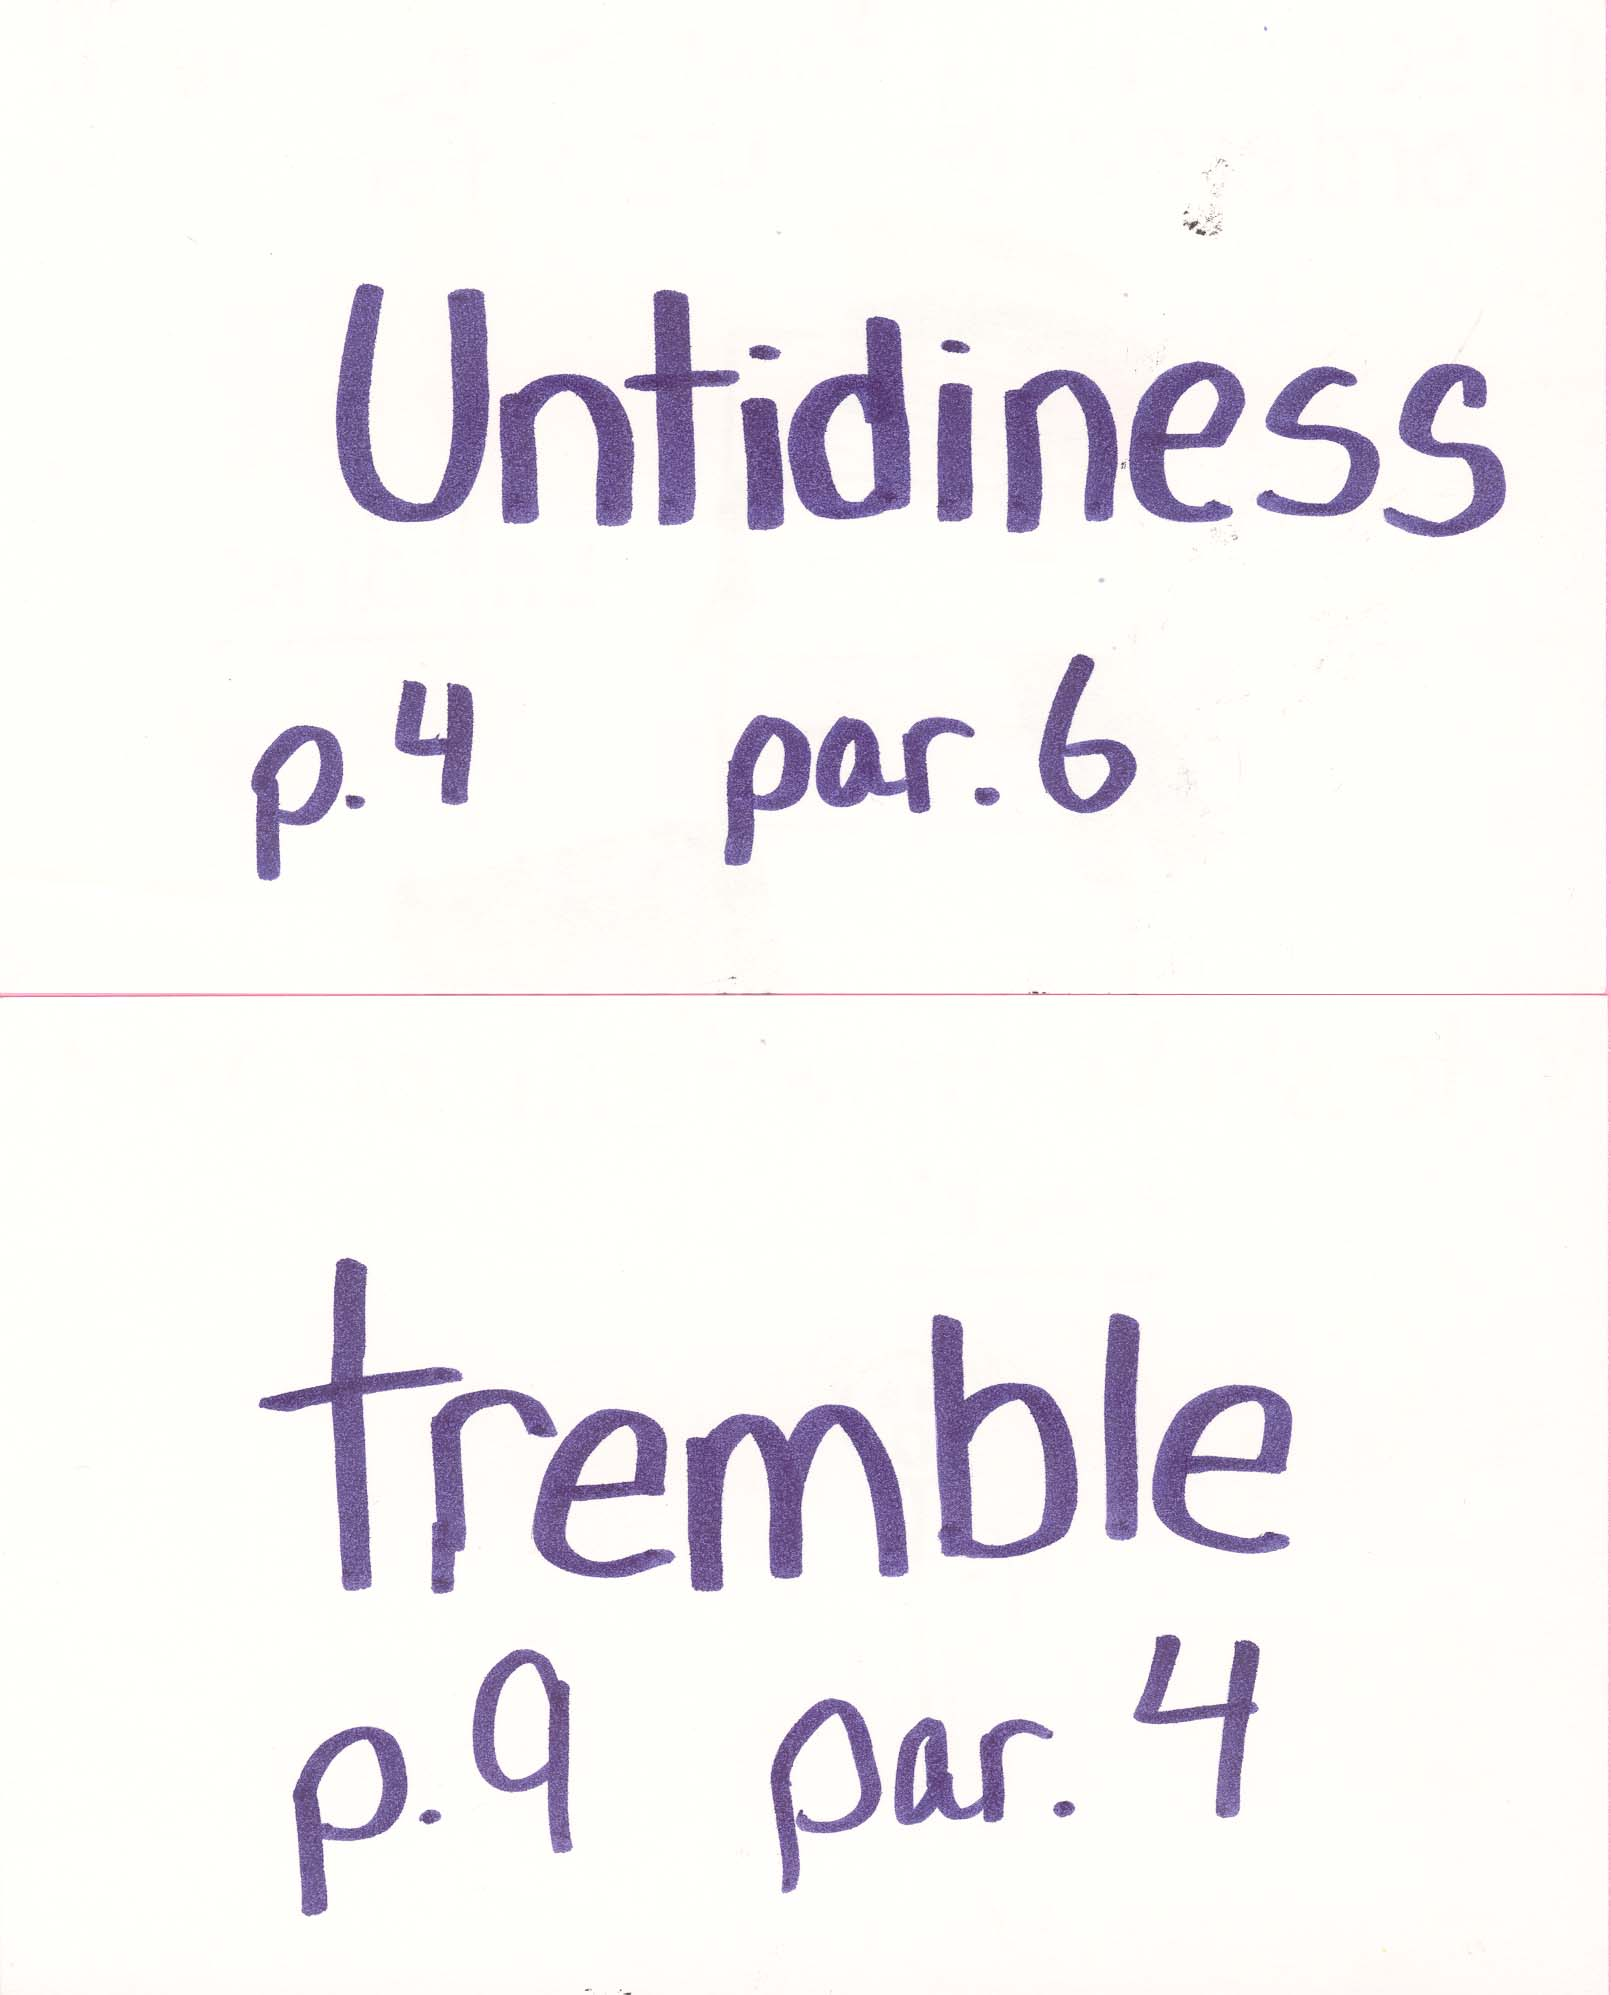 Untidiness
p. 4 par. 6
tremble
p. 9 par. 4